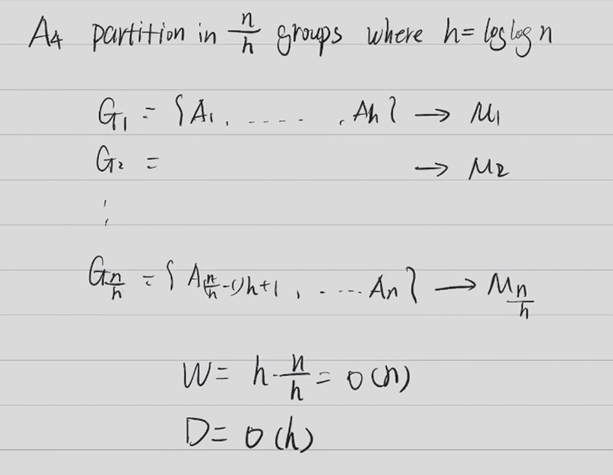 A4 partition in n/h groups where h = loglog n
G1 = {A1, ..... , Ah} → M1
G2 = → M2
⋮
Gn/h = {A(n/h-1)h+1, ..... An} → Mn/h
W = h · n/h = O(n)
D = O(h)